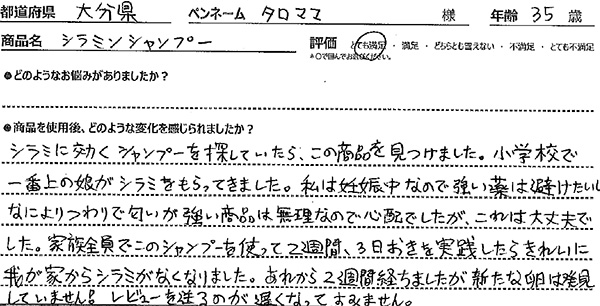 都道府県 大分県 ペンネーム タロママ 様 年齢 35 歳
商品名 シラミンシャンプー 評価 とても満足 ・ 満足 ・ どちらとも言えない ・ 不満足 ・ とても不満足
※○で囲んでお答えください。
●どのようなお悩みがありましたか?
●商品を使用後、どのような変化を感じられましたか?
シラミに効くシャンプーを探していたら、この商品を見つけました。小学校で
一番上の娘がシラミをもらってきました。私は妊娠中なので強い薬は避けたいし
なによりつわりで匂いが強い商品は無理なので心配でしたが、これは大丈夫で
した。家族全員でこのシャンプーを使って2週間、3日おきを実践したらきれいに
我が家からシラミがなくなりました。あれから2週間経ちましたが新たな卵は発見
していません! レビューを送るのが遅くなってすみません。